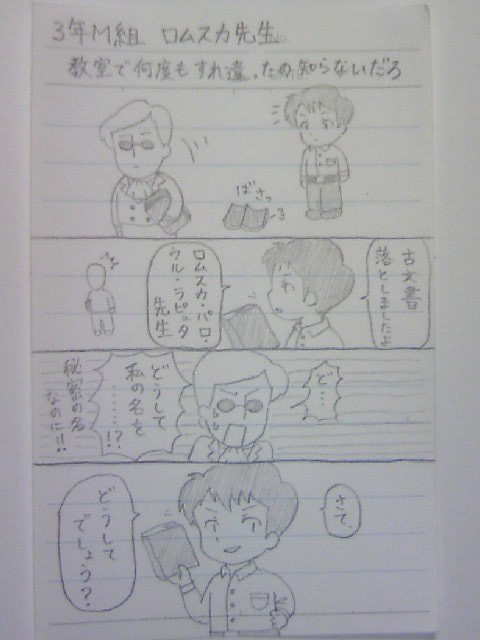 3年M組 ロムスカ先生
教室で何度もすれ違ったの、知らないだろ
ばさっ
古文書
落としましたよ
ロムスカ・パロ・
ウル・ラピュタ
先生
ど…
どうして
私の名を
……!?
秘密の名
なのに!!
さて、
どうして
でしょう?